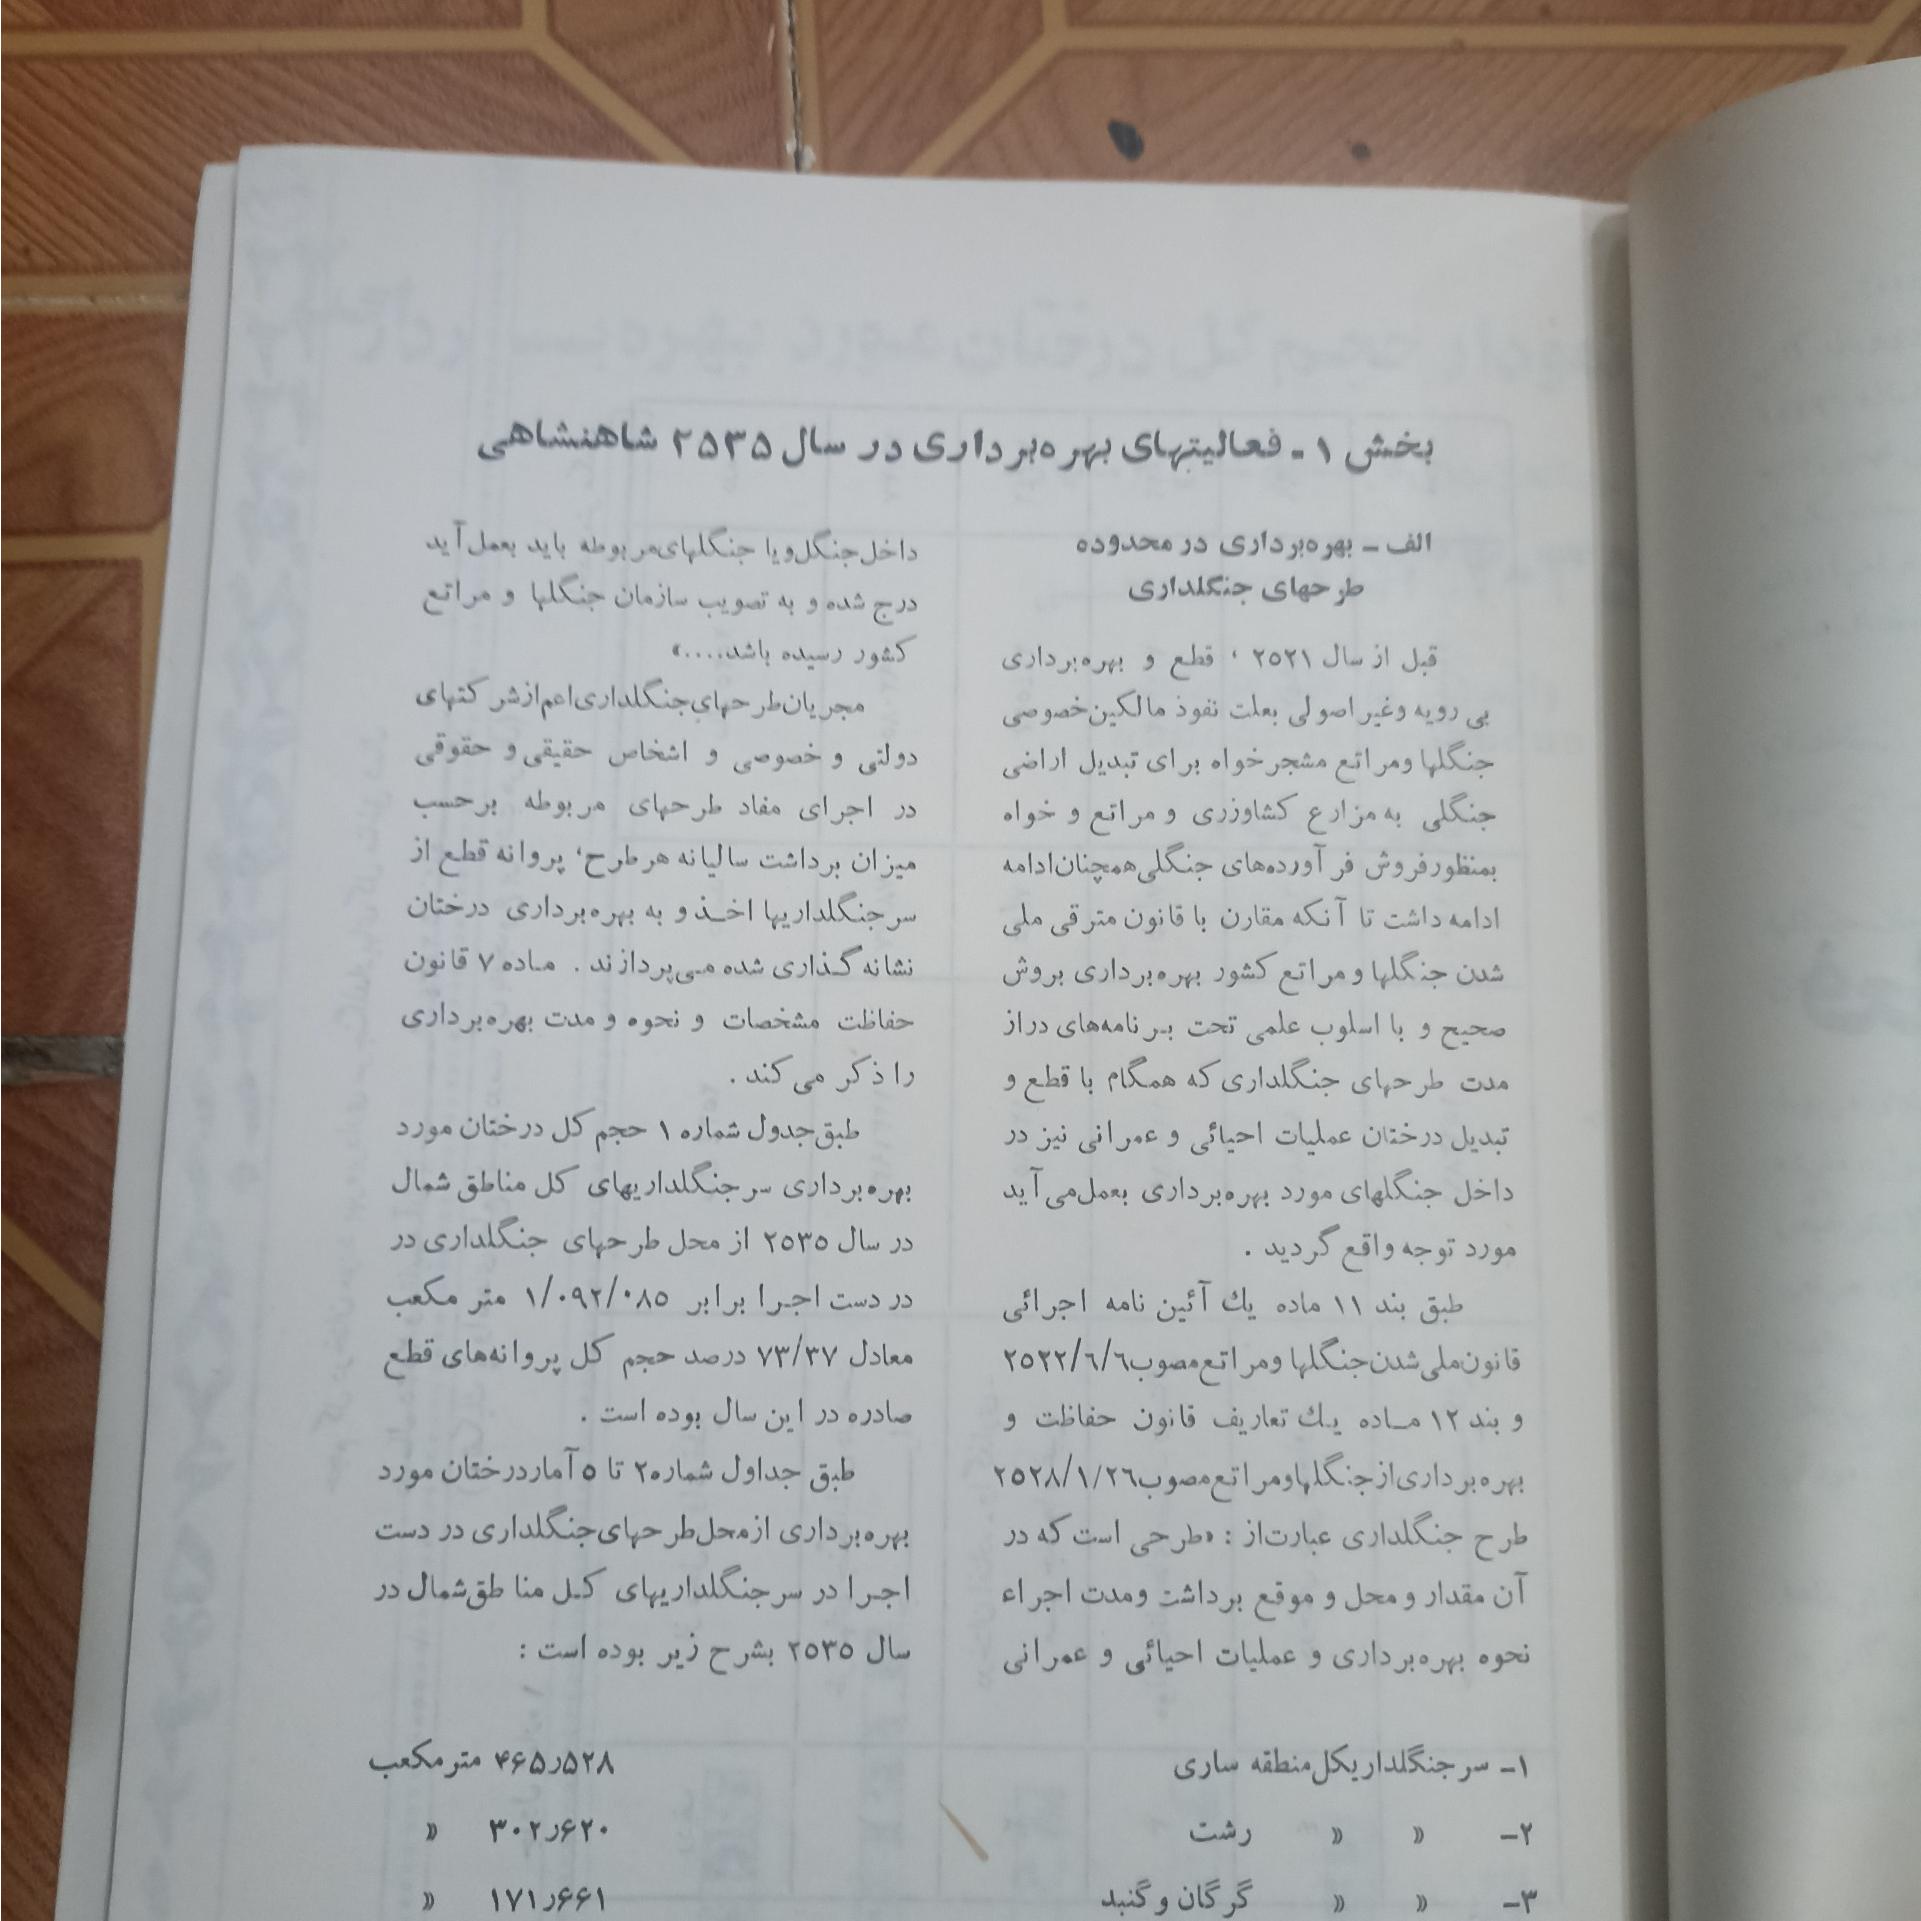 بخش ۱ - فعالیتهای بهره‌برداری در سال ۲۵۳۵ شاهنشاهی
الف - بهره‌برداری در محدوده
طرحهای جنگلداری
قبل از سال ۲۵۲۱ ، قطع و بهره‌برداری
بی رویه وغیر اصولی بعلت نفوذ مالکین خصوصی
جنگلها ومراتع مشجر خواه برای تبدیل اراضی
جنگلی به مزارع کشاوزری و مراتع و خواه
بمنظور فروش فرآورده‌های جنگلی همچنان ادامه
ادامه داشت تا آنکه مقارن با قانون مترقی ملی
شدن جنگلها و مراتع کشور بهره‌برداری بروش
صحیح و با اسلوب علمی تحت برنامه‌های دراز
مدت طرحهای جنگلداری که همگام با قطع و
تبدیل درختان عملیات احیائی و عمرانی نیز در
داخل جنگلهای مورد بهره‌برداری بعمل می آید
مورد توجه واقع گردید .
طبق بند ۱۱ ماده یك آئین نامه اجرائی
قانون ملی شدن جنگلها ومراتع مصوب ۲۵۲۲/٦/٦
و بند ۱۲ مـاده یـك تعاریف قانون حفاظت و
بهره‌برداری از جنگلها و مراتع مصوب ۲۵۲۸/۱/۲٦
طرح جنگلداری عبارت از : «طرحی است که در
آن مقدار و محل و موقع برداشت ومدت اجراء
نحوه بهره‌برداری و عملیات احیائی و عمرانی
داخل جنگل ویا جنگلهای مربوطه باید بعمل آید
درج شده و به تصویب سازمان جنگلها و مراتع
کشور رسیده باشد....»
مجریان طرحهای جنگلداری اعم از شرکتهای
دولتی و خصوصی و اشخاص حقیقی و حقوقی
در اجرای مفاد طرحهای مربوطه برحسب
میزان برداشت سالیانه هر طرح، پروانه قطع از
سرجنگلداریها اخـذ و به بهره‌برداری درختان
نشانه گـذاری شده مـی‌پردازند . مـاده ۷ قانون
حفاظت مشخصات و نحوه و مدت بهره‌برداری
را ذکر می کند .
طبق جدول شماره ۱ حجم کل درختان مورد
بهره‌برداری سرجنگلداریهای کل مناطق شمال
در سال ۲۵۳۵ از محل طرحهای جنگلداری در
در دست اجـرا برابر ۱/۰۹۲/۰۸۵ متر مکعب
معادل ۷۳/۳۷ درصد حجم کل پروانه‌های قطع
صادره در این سال بوده است .
طبق جداول شماره ۲ تا ۵ آمار درختان مورد
بهره‌برداری از محل طرحهای جنگلداری در دست
اجـرا در سرجنگلداریهای کـل مناطق شمال در
سال ۲۵۳۵ بشرح زیر بوده است :
۱- سرجنگلداریکل منطقه ساری ۴۶۵٫۵۲۸ مترمکعب
۲- « « رشت ۳۰۲٫۶۲۰ «
۳- « « گرگان و گنبد ۱۷۱٫۶۶۱ «